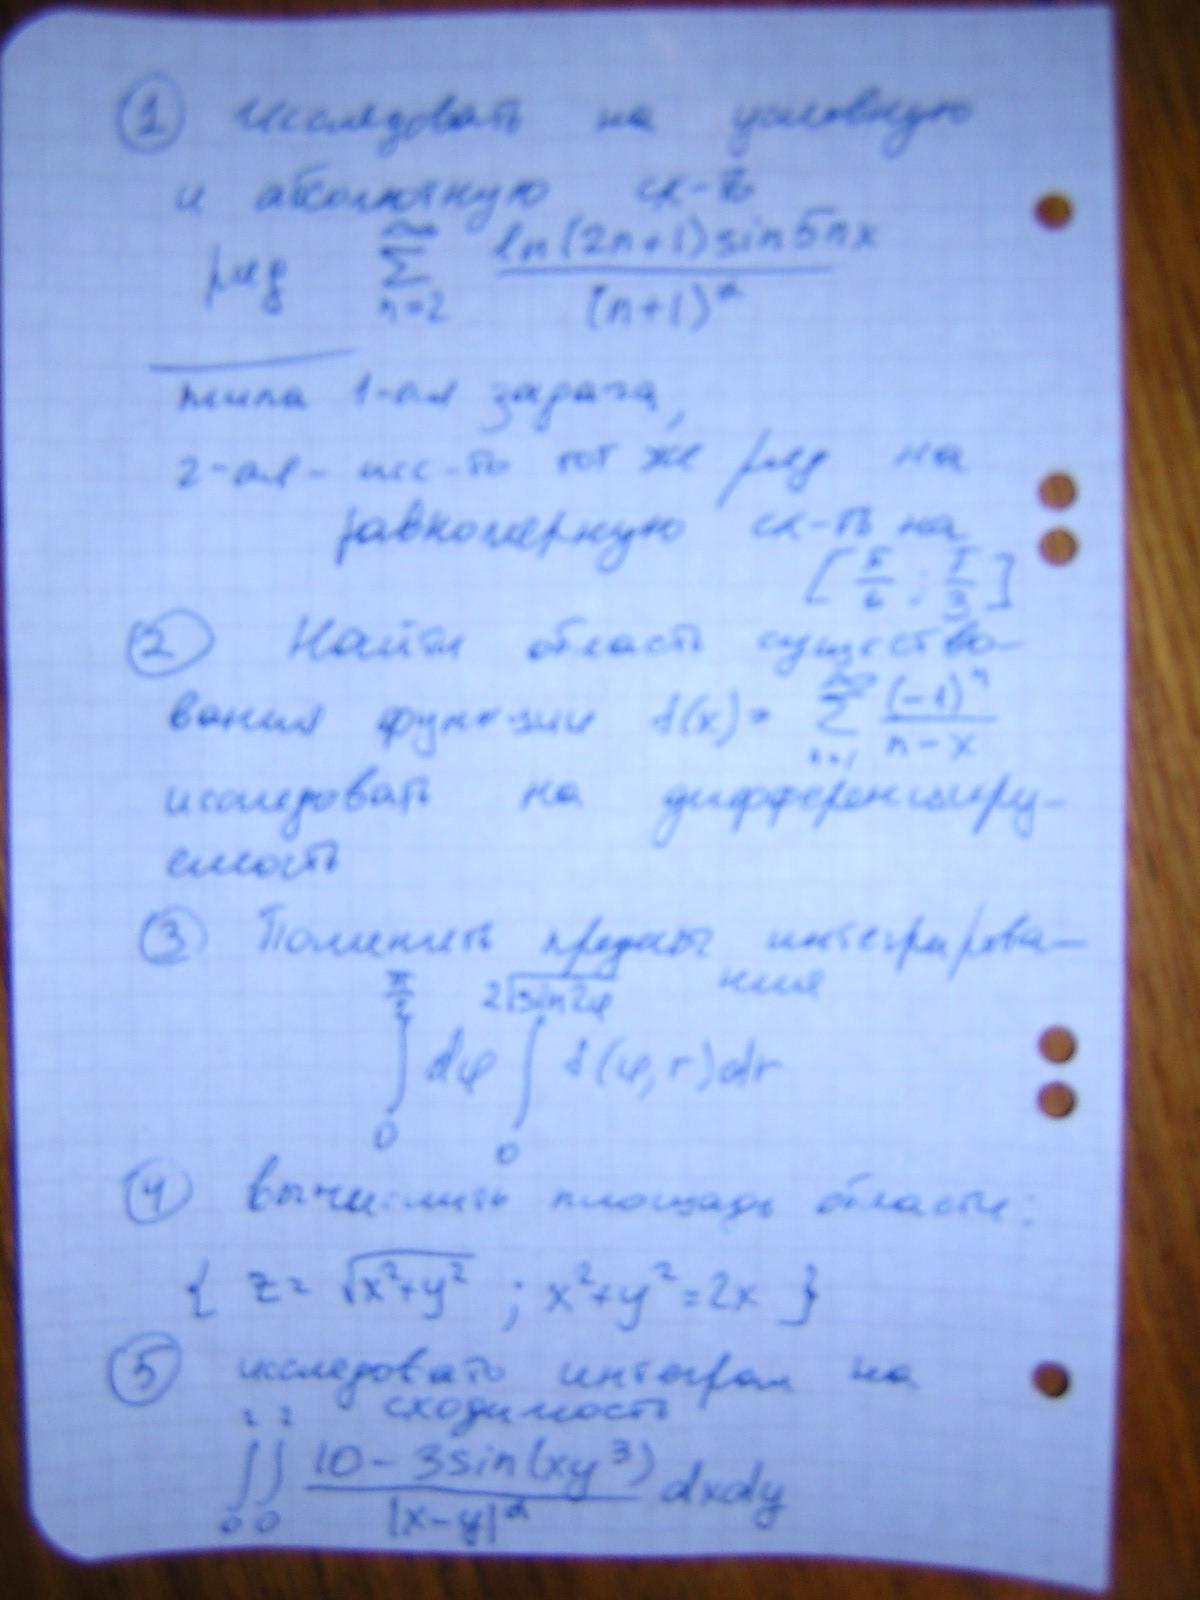 ① Исследовать на условную
и абсолютную сх-ть
ряд ∑_{n=2}^{∞} ln(2n+1)sin5nx / (n+1)^α
типа 1-ая задача,
2-ая - исс-ть тот же ряд на
равномерную сх-ть на
[π/6 ; π/3]
② Найти область существо-
вания функции f(x) = ∑_{n=1}^{∞} (-1)^n / (n-x)
исследовать на дифференциру-
емость
③ Поменять пределы интегрирова-
ния
∫_0^{π/2} dφ ∫_0^{2√sin2φ} f(φ,r)dr
④ Вычислить площадь области:
{ z = √(x²+y²) ; x²+y²=2x }
⑤ исследовать интеграл на
сходимость
∫_0^2 ∫_0^2 (10-3sin(xy³)) / |x-y|^α dxdy